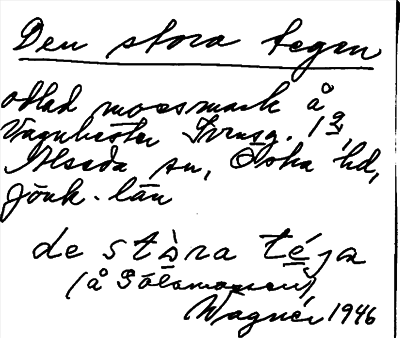 Den stora tegen
odlad mossmark å
Vagnhester Svensg. 1 2,
Alseda sn, Östra hd,
Jönk. län
de stòra téja
(å Sålamossen)
Wagnér 1946